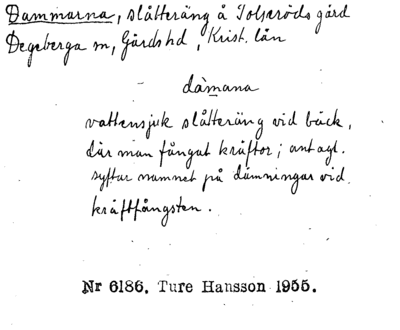 Dammarna, slåtteräng å Tolseröds gård
Degeberga sn, Gärds hd, Krist. län
damana
vattensjuk slåtteräng vid bäck,
där man fångat kräftor; antagl.
syftar namnet på dämningar vid
kräftfångsten.
Nr 6186. Ture Hansson 1955.